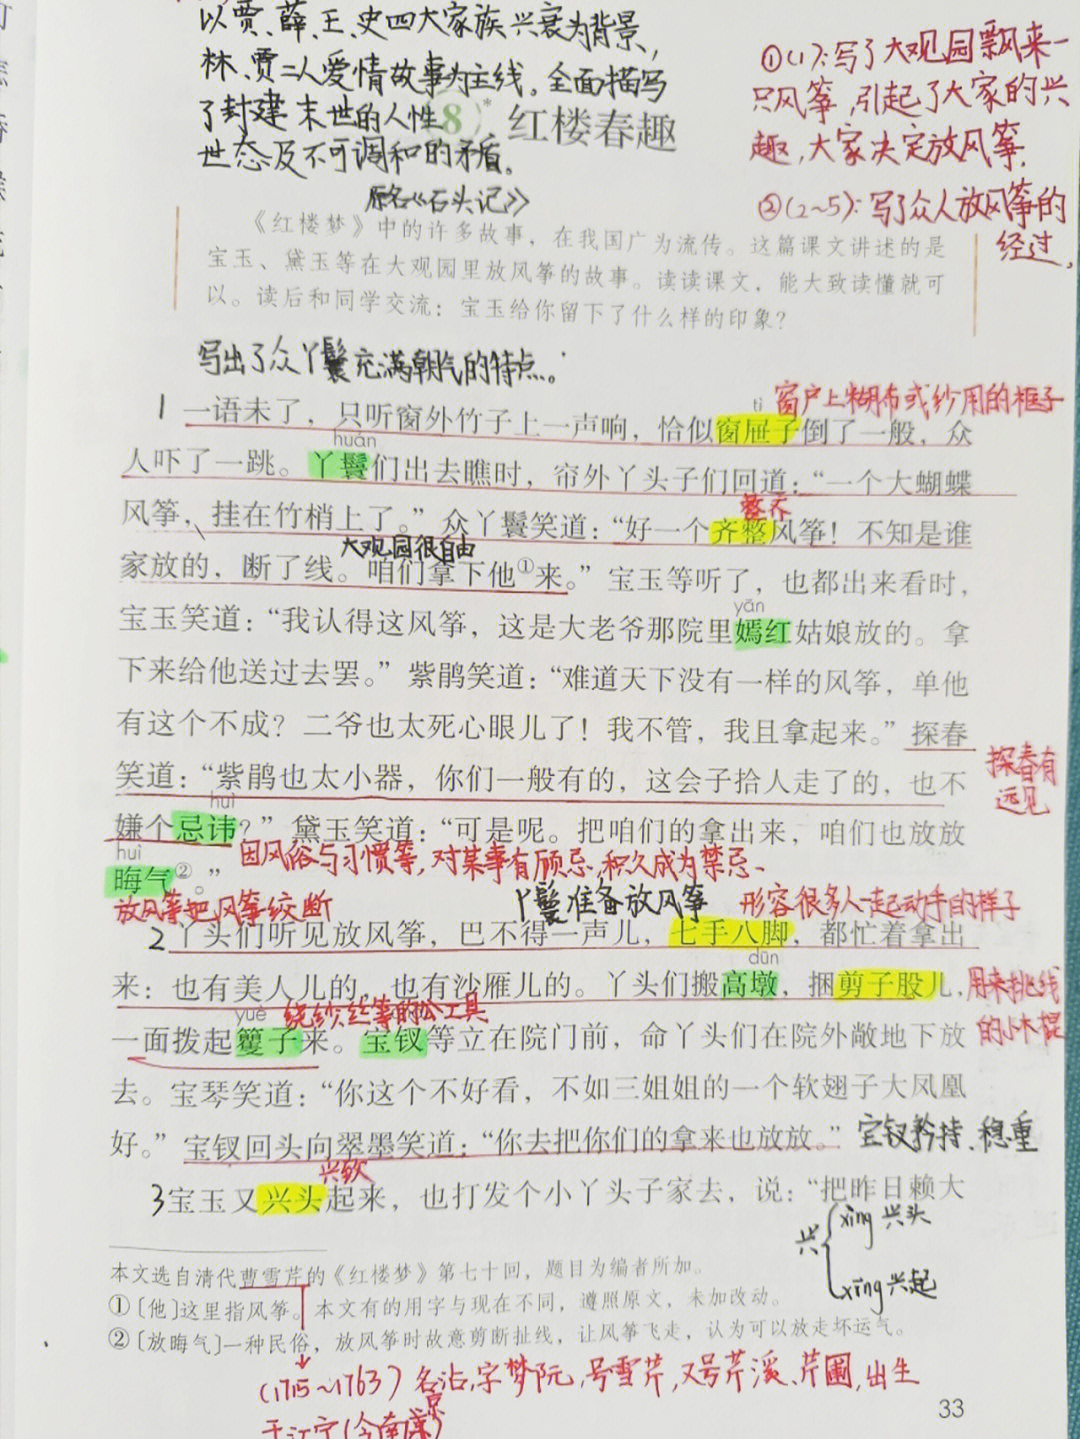 以贾、薛、王、史四大家族兴衰为背景,
林、贾二人爱情故事为主线。全面描写
了封建末世的人性
世态及不可调和的矛盾。
8* 红楼春趣
原名《石头记》
①(1):写了大观园飘来一
只风筝,引起了大家的兴
趣,大家决定放风筝.
②(2~5):写了众人放风筝的
经过,
《红楼梦》中的许多故事,在我国广为流传。这篇课文讲述的是
宝玉、黛玉等在大观园里放风筝的故事。读读课文,能大致读懂就可
以。读后和同学交流:宝玉给你留下了什么样的印象?
写出了众丫鬟充满朝气的特点。
窗户上糊布或纱用的框子
tì
1 一语未了,只听窗外竹子上一声响,恰似窗屉子倒了一般,众
huán
人吓了一跳。丫鬟们出去瞧时,帘外丫头子们回道:“一个大蝴蝶
整齐
风筝,挂在竹梢上了。”众丫鬟笑道:“好一个齐整风筝!不知是谁
大观园很自由
家放的,断了线。咱们拿下他①来。”宝玉等听了,也都出来看时,
yān
宝玉笑道:“我认得这风筝,这是大老爷那院里嫣红姑娘放的。拿
下来给他送过去罢。”紫鹃笑道:“难道天下没有一样的风筝,单他
有这个不成?二爷也太死心眼儿了!我不管,我且拿起来。”探春
笑道:“紫鹃也太小器,你们一般有的,这会子拾人走了的,也不
探春有
远见
huì
嫌个忌讳?”黛玉笑道:“可是呢。把咱们的拿出来,咱们也放放
因风俗与习惯等,对某事有顾忌,积久成为禁忌、
huì
晦气②。”
放风筝把风筝绞断
丫鬟准备放风筝
形容很多人一起动手的样子
2 丫头们听见放风筝,巴不得一声儿,七手八脚,都忙着拿出
dūn
来:也有美人儿的,也有沙雁儿的。丫头们搬高墩,捆剪子股儿,
用来挑线
的小木棍
yuè
绕纱丝等的工具
一面拨起籰子来。宝钗等立在院门前,命丫头们在院外敞地下放
去。宝琴笑道:“你这个不好看,不如三姐姐的一个软翅子大凤凰
好。”宝钗回头向翠墨笑道:“你去把你们的拿来也放放。”
宝钗矜持、稳重
3 宝玉又兴头起来,也打发个小丫头子家去,说:“把昨日赖大
兴 xìng 兴头
xīng 兴起
本文选自清代曹雪芹的《红楼梦》第七十回,题目为编者所加。
①〔他〕这里指风筝。本文有的用字与现在不同,遵照原文,未加改动。
②〔放晦气〕一种民俗,放风筝时故意剪断扯线,让风筝飞走,认为可以放走坏运气。
(1715~1763) 名沾,字梦阮,号雪芹,又号芹溪、芹圃,出生
于江宁(今南京)
33